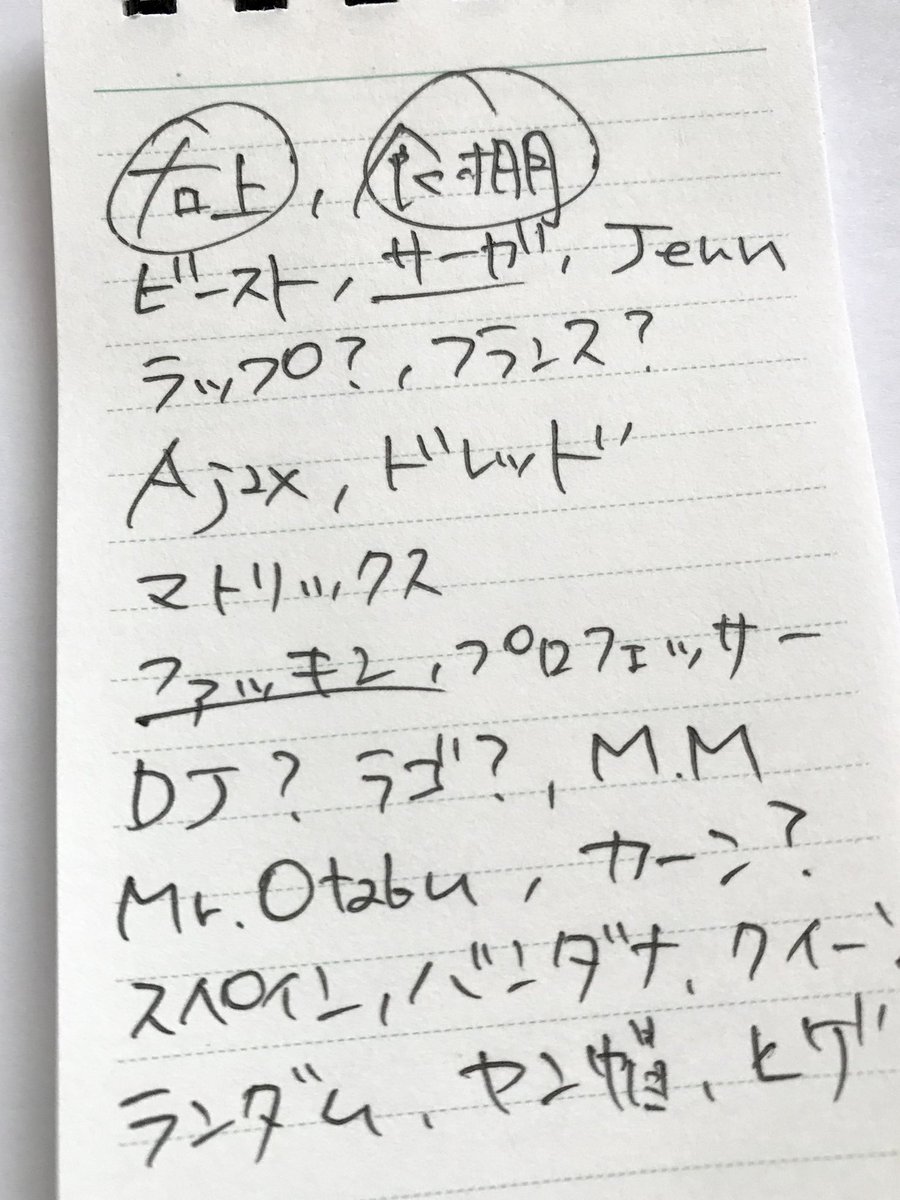 右上,
ビースト, サーガ, Jenn
ラップ?, フランス?
Ajax, ドレッド
マトリックス
ファッキン, プロフェッサー
DJ? ラゴ?, M.M
Mr. Otaku, カーン?
スペイン, バンダナ, クイーン
ランダム, ヤン, ヒゲ